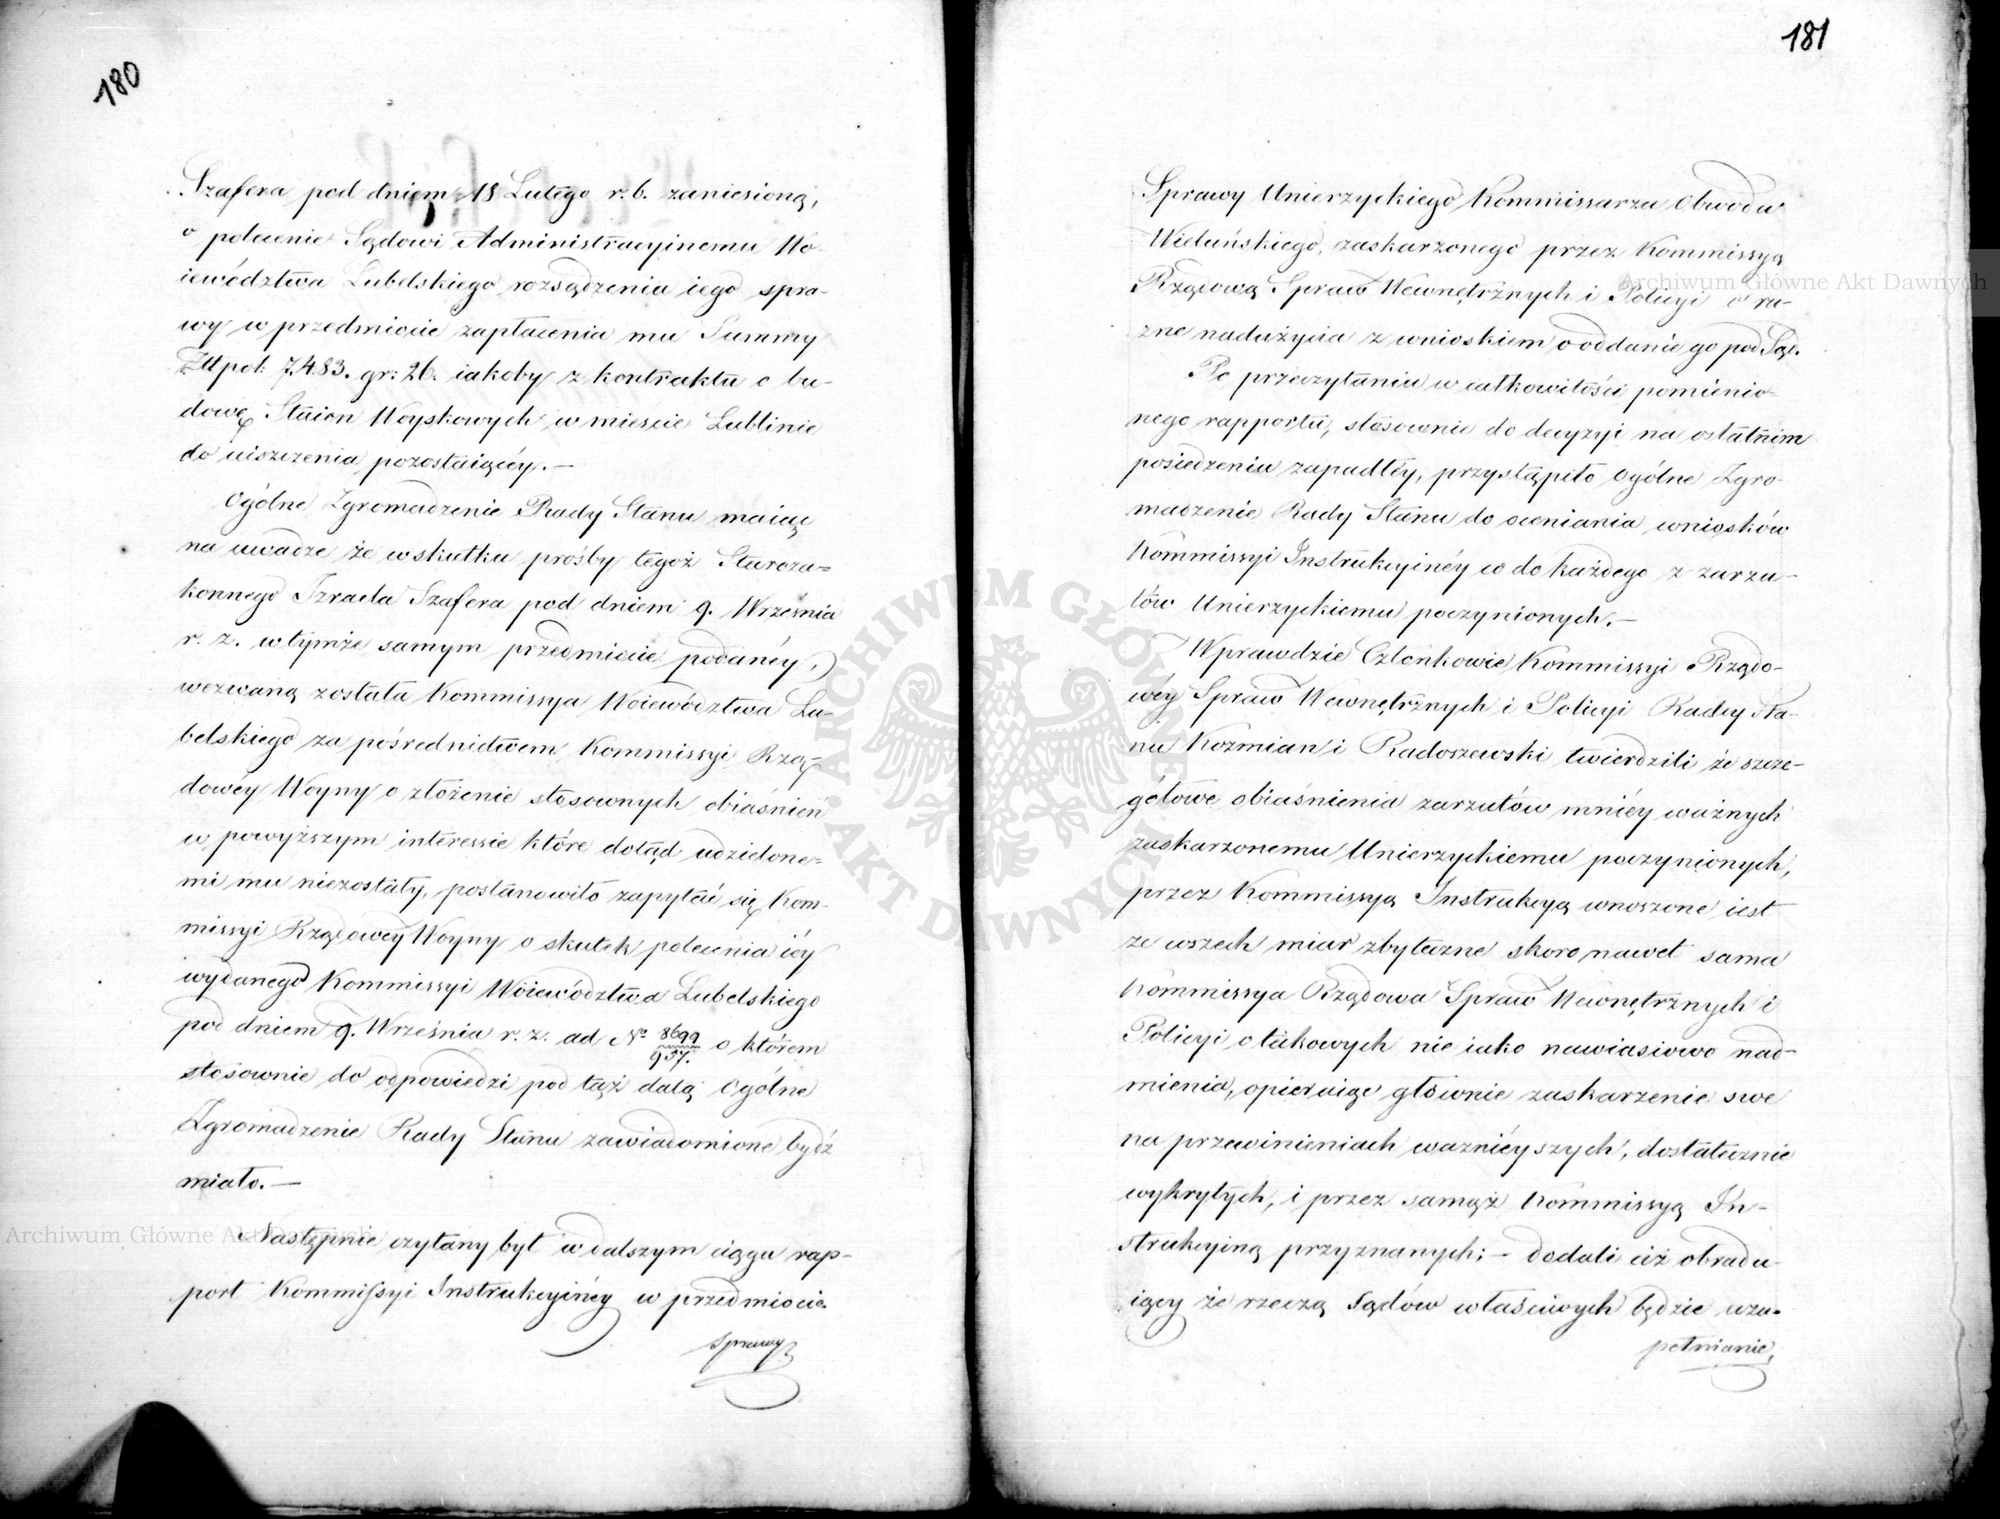 180
Szafera pod dniem 18 Lutego r. b. zaniesioną,
o polecenie Sądowi Administracyinemu Wo-
iewództwa Lubelskiego rozsądzenia iego spra-
wy w przedmiocie zapłacenia mu Summy
Złt pol: 7.483. gr: 26. iakoby z kontraktu o bu-
dowę Staien Woyskowych w mieście Lublinie
do uiszczenia pozostaiącéy. —
Ogólne Zgromadzenie Rady Stanu maiąc
na uwadze że w skutku prośby tegoż Staroza=
konnego Izraela Szafera pod dniem 9. Września
r. z. w tymże samym przedmiocie podanéy,
wezwaną została Kommissya Woiewództwa Lu-
belskiego za pośrednictwem Kommissyi Rzą-
dowéy Woyny o złożenie stosownych obiaśnień
w powyższym interessie które dotąd udzielone-
mi mu niezostały, postanowiło zapytać się Kom-
missyi Rządowéy Woyny o skutek polecenia iéy
wydanego Kommissyi Woiewództwa Lubelskiego
pod dniem 9. Września r. z. ad No 8699/957. o którem
stosownie do odpowiedzi pod tąż datą Ogólne
Zgromadzenie Rady Stanu zawiadomione bydź
miało. —
Następnie czytany był w dalszym ciągu rap-
port Kommissyi Instrukcyinéy w przedmiocie
sprawy
181
Sprawy Unierzyckiego Kommissarza Obwodu
Wieluńskiego, zaskarzonego przez Kommissyą
Rządową Spraw Wewnętrznych i Policyi o ró-
zne nadużycia z wnioskiem o oddanie go pod Sąd.
Po przeczytaniu w całkowitości pomienio-
nego rapportu, stosownie do decyzyi na ostatnim
posiedzeniu zapadłéy, przystąpiło Ogólne Zgro-
madzenie Rady Stanu do oceniania wniosków
Kommissyi Instrukcyinéy co do każdego z zarzu-
tów Unierzyckiemu poczynionych. —
Wprawdzie Członkowie Kommissyi Rządo-
wéy Spraw Wewnętrznych i Policyi Radcy Sta-
nu Kozmian i Radoszewski twierdzili że szcze-
gółowe obiaśnienia zarzutów mniéy ważnych
zaskarzonemu Unierzyckiemu poczynionych,
przez Kommissyą Instrukcyą wnoszone iest
ze wszech miar zbyteczne skoro nawet sama
Kommissya Rządowa Spraw Wewnętrznych i
Policyi o takowych nie iako nawiasowo nad-
mienia, opieraiąc głównie zaskarzenie swe
na przewinieniach wazniéyszych, dostatecznie
wykrytych, i przez samąż Kommissyą In-
strukcyiną przyznanych; — dodali ciż obradu-
iący że rzeczą Sądów właściwych będzie uzu-
pełnianie,
ARCHIWUM GŁÓWNE AKT DAWNYCH
Archiwum Główne Akt Dawnych
Archiwum Główne Akt Dawnych